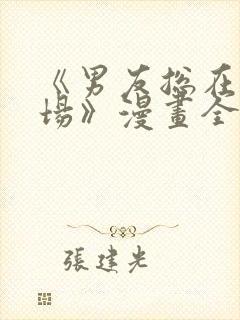 《男友總在
場》漫畫全
張建光